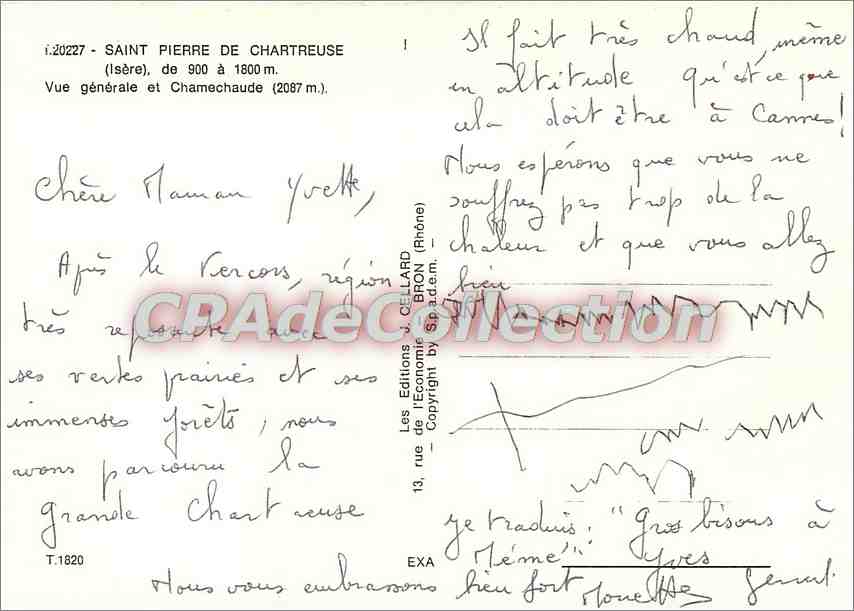 I.20227 - SAINT PIERRE DE CHARTREUSE
(Isère), de 900 à 1800 m.
Vue générale et Chamechaude (2087 m.).
Chère Maman Yvette,
Après le Vercors, région
très reposante avec
ses vertes prairies et ses
immenses forêts, nous
avons parcouru la
Grande Chartreuse
T.1820
Les Editions J. CELLARD
13, rue de l'Economie - BRON (Rhône)
— Copyright by S.p.a.d.e.m. —
EXA
Il fait très chaud, même
en altitude qu'est ce que
cela doit être à Cannes!
Nous espérons que vous ne
souffrez pas trop de la
chaleur et que vous allez
bien
CPAdeCollection
je traduis : "Gros bisous à
Mémé" Yves
Nous vous embrassons bien fort